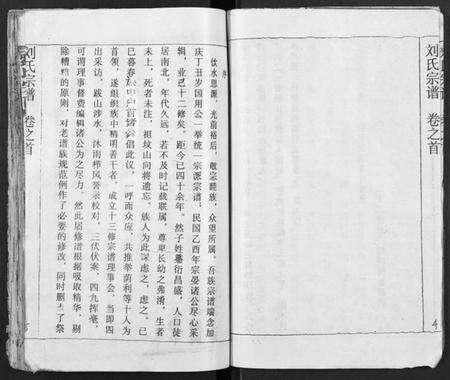 刘氏宗谱 卷之首
序
饮水思源，光前裕后，敬宗睦族，众望所属。吾族宗谱端念加
庆丁丑岁国用公一举统一宗派宗谱，民国乙酉年宗晏诸公尽心采
辑，业已十二修矣。距今已四十余年。然子姓蕃衍昌盛，人口徒
居南北，年代久远，若不及时记载联属，尊卑长幼之弗淆，生者
未上，死者未注，祖坟山向将遗忘，族人为此深虑之，虑之。己
巳暮春 首 倡此议，一呼而众应，共推举荫利等十人为
首领，遂组织族中精明善干者，成立十三修宗谱理事会，当即四
出采访，跋山涉水，沐雨栉风誊录校对，三伏伏案，四九挥毫，
可谓理事督费编辑诸公为之尽力。然此届修谱根据吸取精华，剔
除糟粕的原则，对老谱族规范例作了必要的修改，同时删去了祭
刘氏宗谱 卷之首